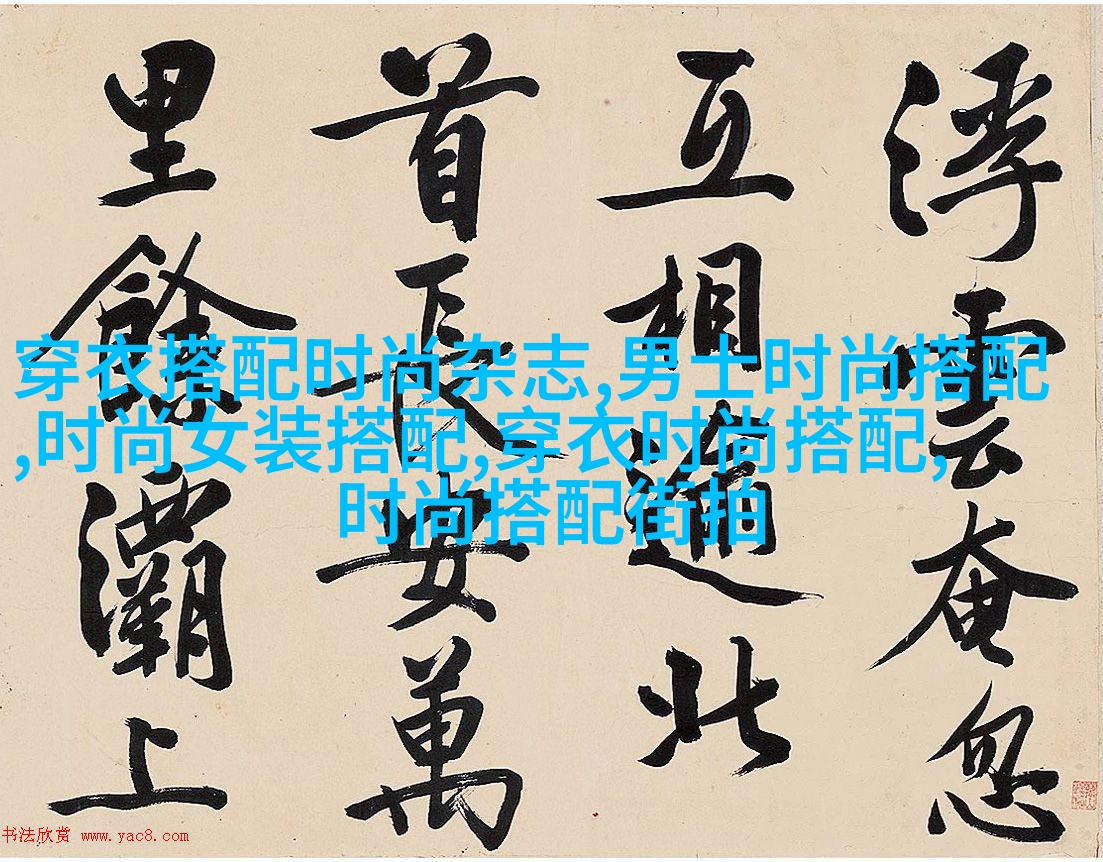 浮雲奄忽
互相逾北
首長安萬
里餘灞上
穿衣搭配时尚杂志,男士时尚搭配
,时尚女装搭配,穿衣时尚搭配,
时尚搭配街拍
书法欣赏 www.yac8.com